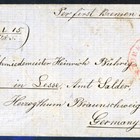 Per first Bremen
Schmiedemeister Heinrich Nühring
in Lesse Amt Salder
Herzogthum Braunschweig
Germany